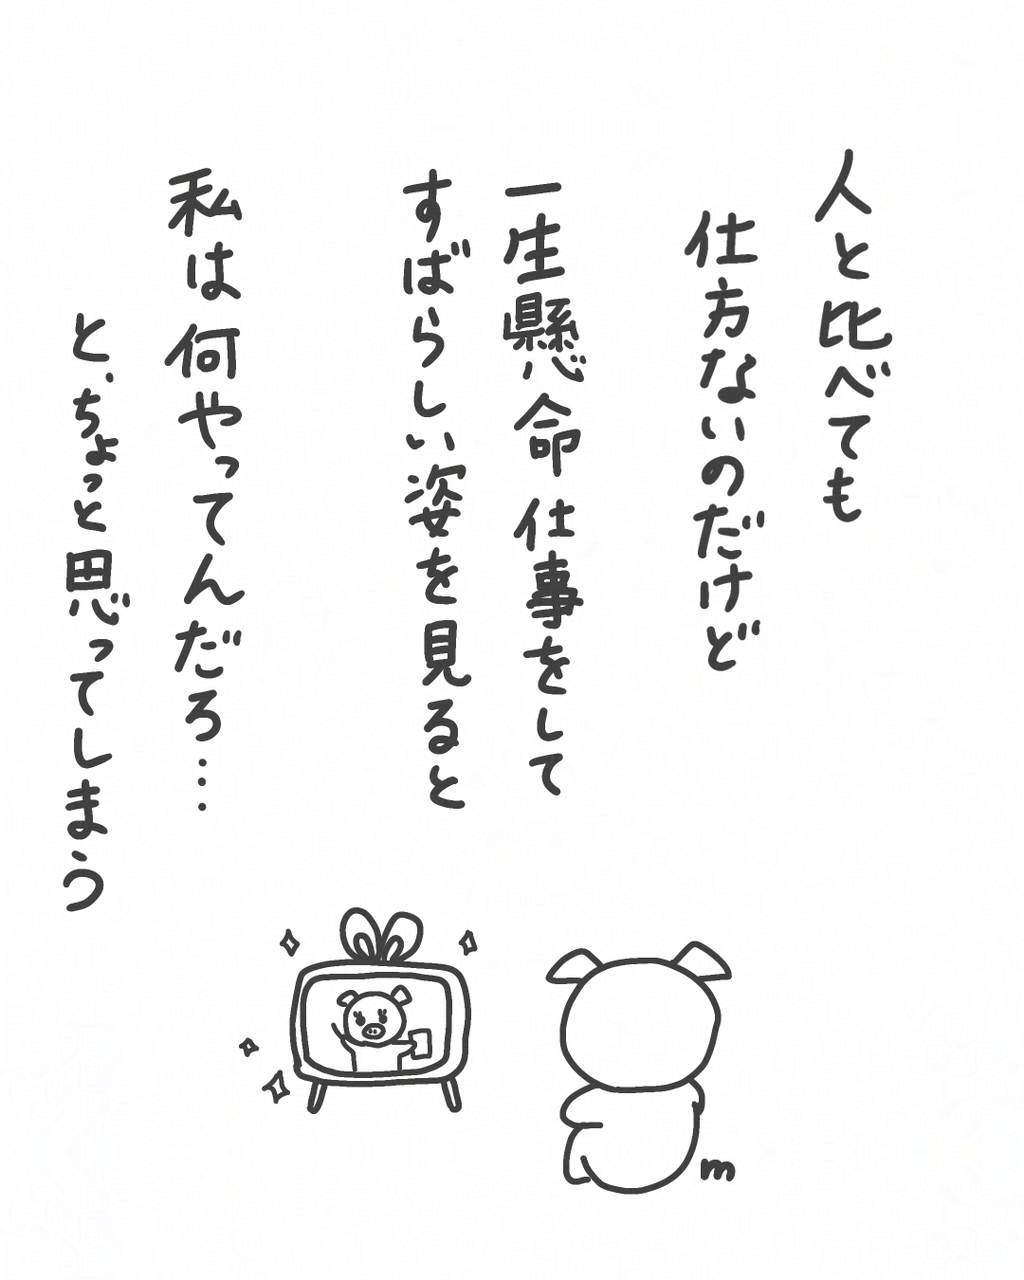 人と比べても
仕方ないのだけど
一生懸命仕事をして
すばらしい姿を見ると
私は何やってんだろ…
と、ちょっと思ってしまう
m